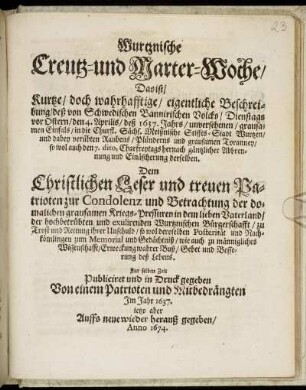 23
Wurtznische
Creutz-und Marter-Woche/
Das ist/
Kurtze/ doch warhafftige/ eigentliche Beschrei-
bung/ deß von Schwedischen Bannirischen Volcks/ Dienstags
vor Ostern/ den 4. Aprilis/ deß 1637. Jahrs/ unversehenen/ grausa-
men Einfals/ in die Churfl. Sächs. Meißnische Stiffts-Stadt Wurtzen/
und dabey verübten Raubens/ Plünderns und grausamen Tyranney/
so wol auch den 7. dito, Charfreytags hernach gäntzlicher Abbren-
nung und Einäscherung derselben.
Dem
Christlichen Leser und treuen Pa-
trioten zur Condolenz und Betrachtung der do-
maligen grausamen Kriegs-Pressuren in dem lieben Vaterland/
der hochbetrübten und exulirenden Wurtznischen Bürgerschafft/ zu
Trost und Rettung ihrer Unschuld/ so wol derselben Posterität und Nach-
kömlingen zum Memorial und Gedächtniß/ wie auch zu männigliches
Wissenschafft/ Erweckung wahrer Buß/ Gebet und Besse-
rung deß Lebens.
Zur selben Zeit
Publiciret und in Druck gegeben
Von einem Patrioten und Mitbedrängten
Im Jahr 1637.
ietzo aber
Auffs neue wieder herauß gegeben/
Anno 1674.